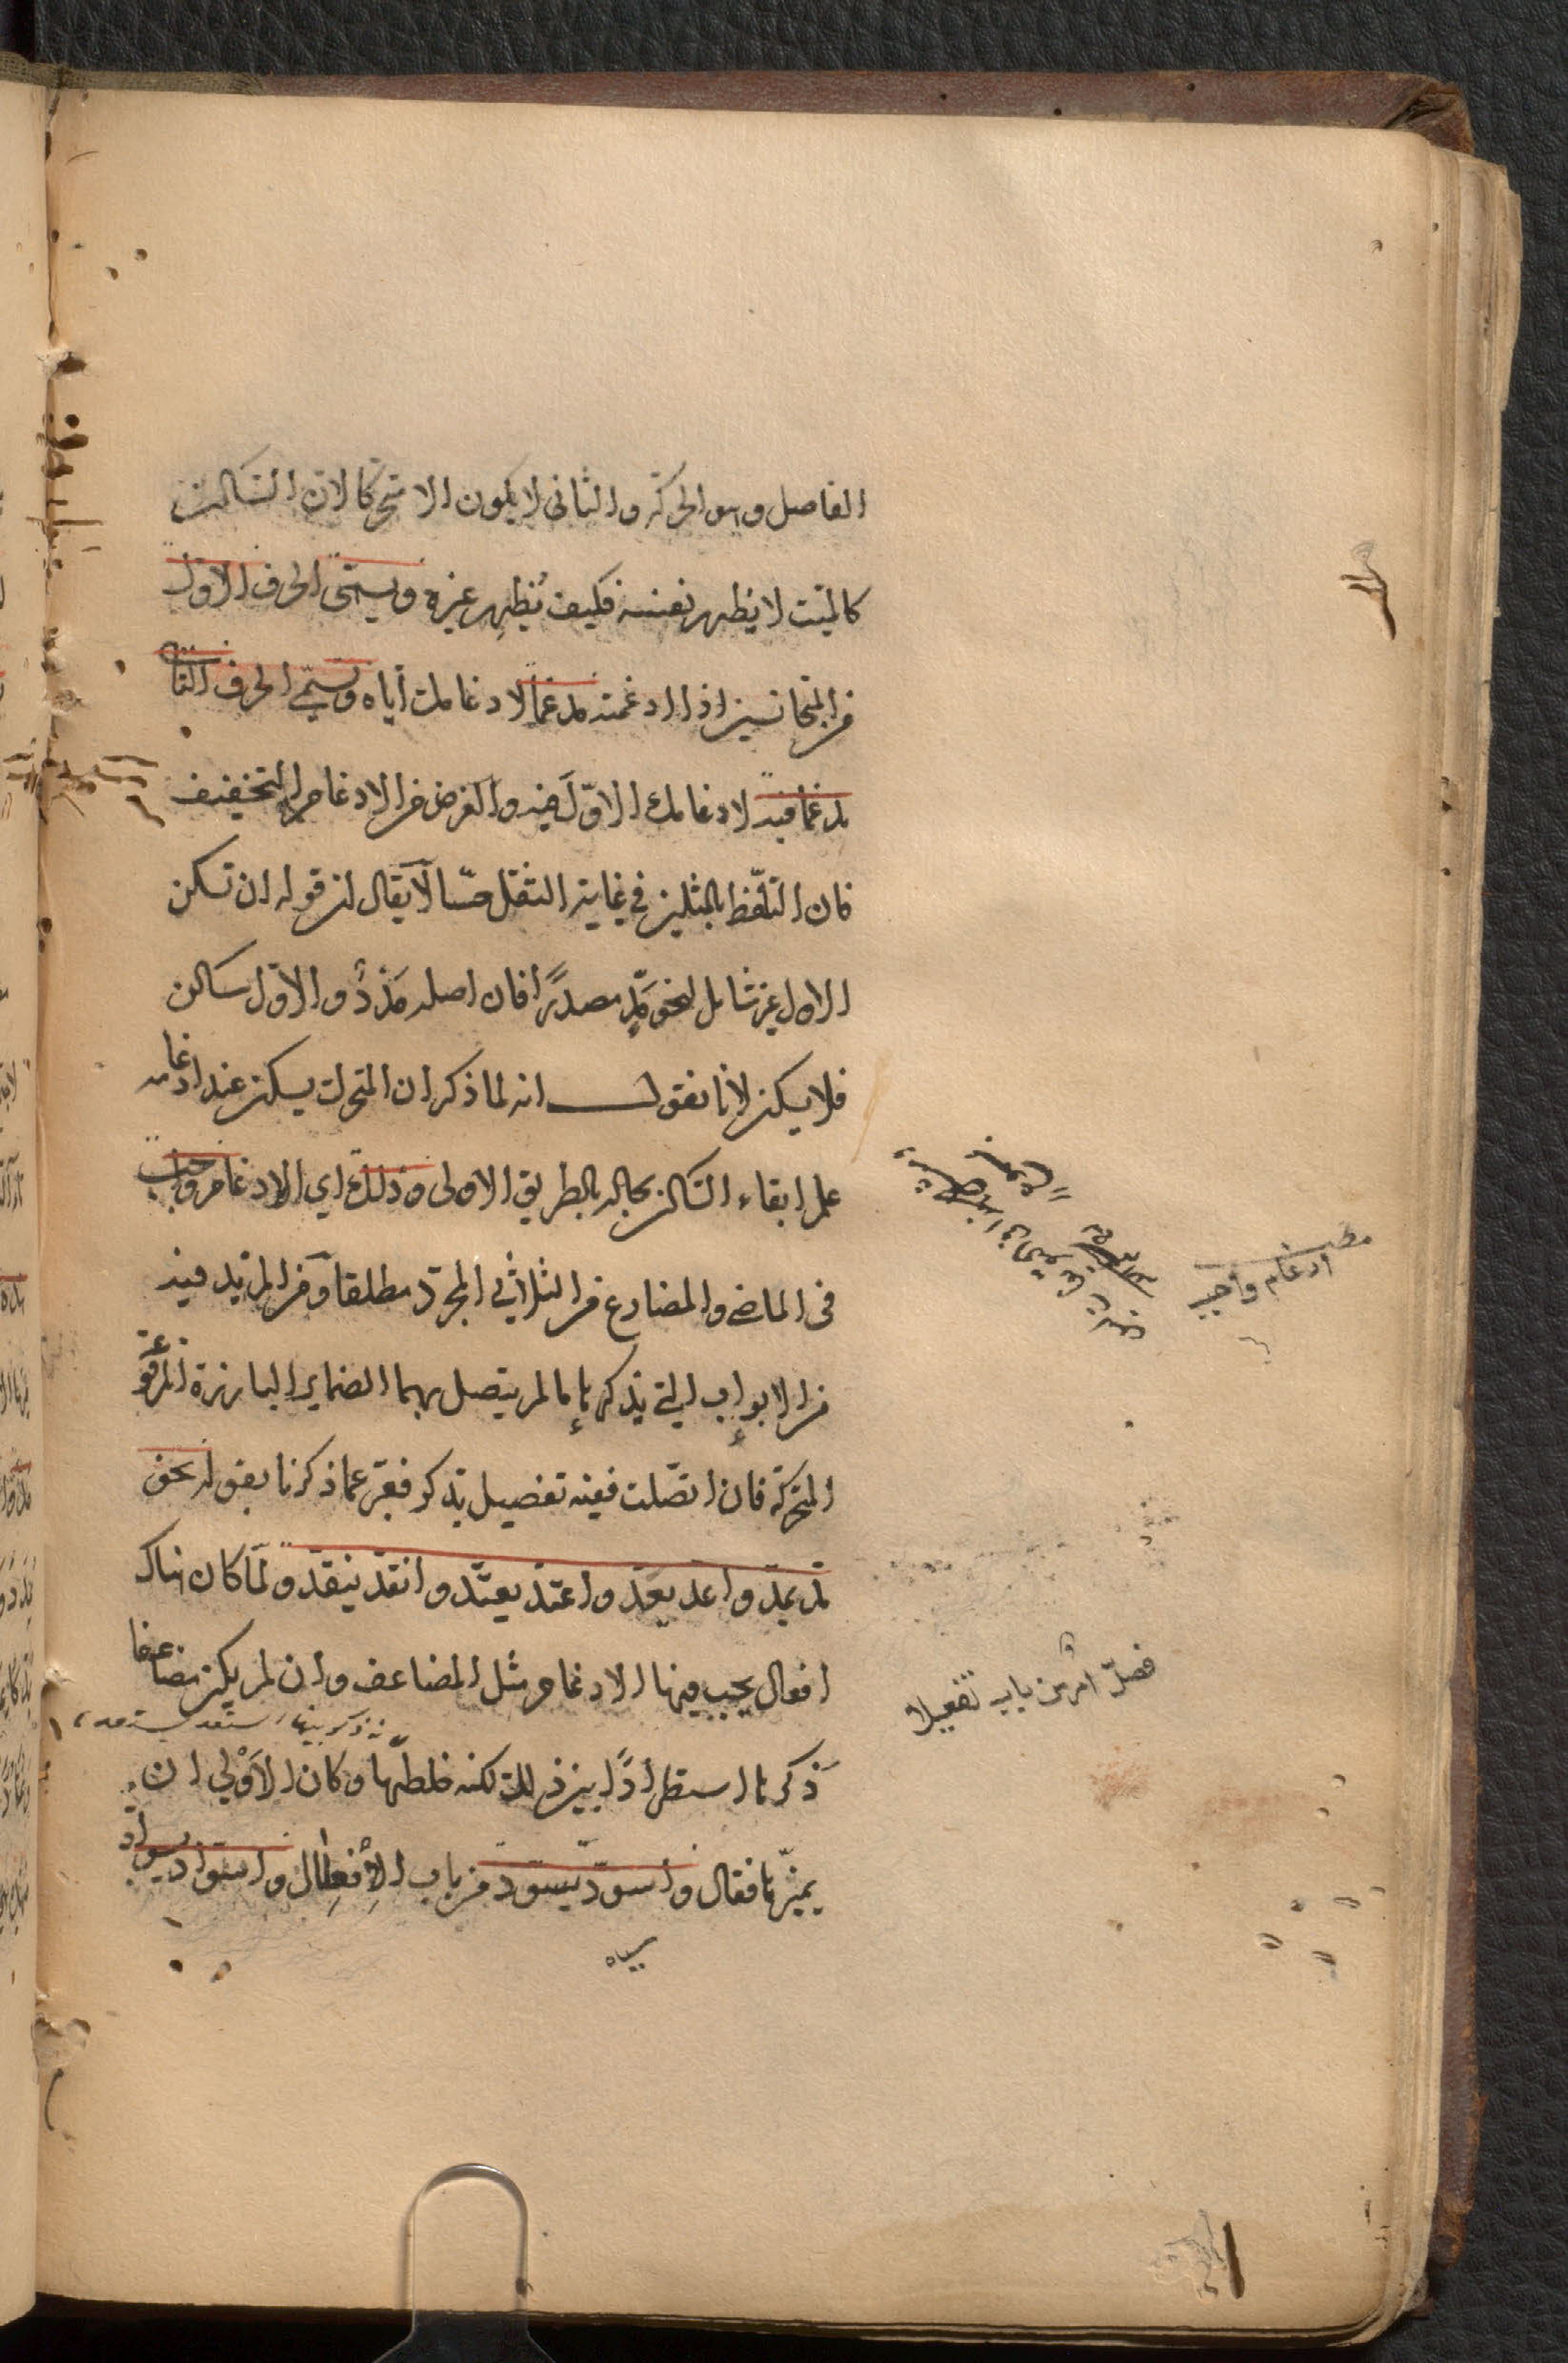 الفاصل وهو الحركة والثاني لا يكون الا متحركا لان الساكن
كالميّت لا يظهر نفسه فكيف يُظهِر غيره ويسمّى الحرف الاوّل
من المتجانسين اذا ادغمته مدغما لادغامك اياه ويسمّى الحرف الثاني
مدغما فيه لادغامك الاوّل فيه والغرض من الادغام التخفيف
فان التلفّظ بالمثلين في غاية الثقل حسّا لا يقال ان قوله ان تسكن
الاول غير شامل لنحو مَدٍّ مصدرًا فان اصله مَدْدٌ والاوّل ساكن
فلا يسكن لانا نقول انه لما ذكر ان المتحرك يسكن عند ادغامه
علم ابقاء الساكن بحاله بالطريق الاولى وذلك اي الادغام واجب
في الماضي والمضارع من الثلاثي المجرّد مطلقا ومن المزيد فيه
من الابواب التي يذكرها ما لم يتصل بهما الضماير البارزة المرفوعة
المتحركة فان اتصّلت ففيه تفصيل يذكر فعبّر عما ذكرنا بقوله نحو
مدّ يمدّ واعدّ يعدّ واعتدّ يعتدّ وانقدّ ينقدّ ولمّا كان هناك
افعال يجب فيها الادغام مثل المضاعف وان لم يكن مضاعفا
ذكرها استطرادًا بين ذلك لكنه خلطها وكان الاَوْلى ان
يميّزها فقال واسودّ يسودّ من باب الافعلال واسوادّ يسوادّ
سياه
ادغام واجب
فصل امر من باب تفعيل